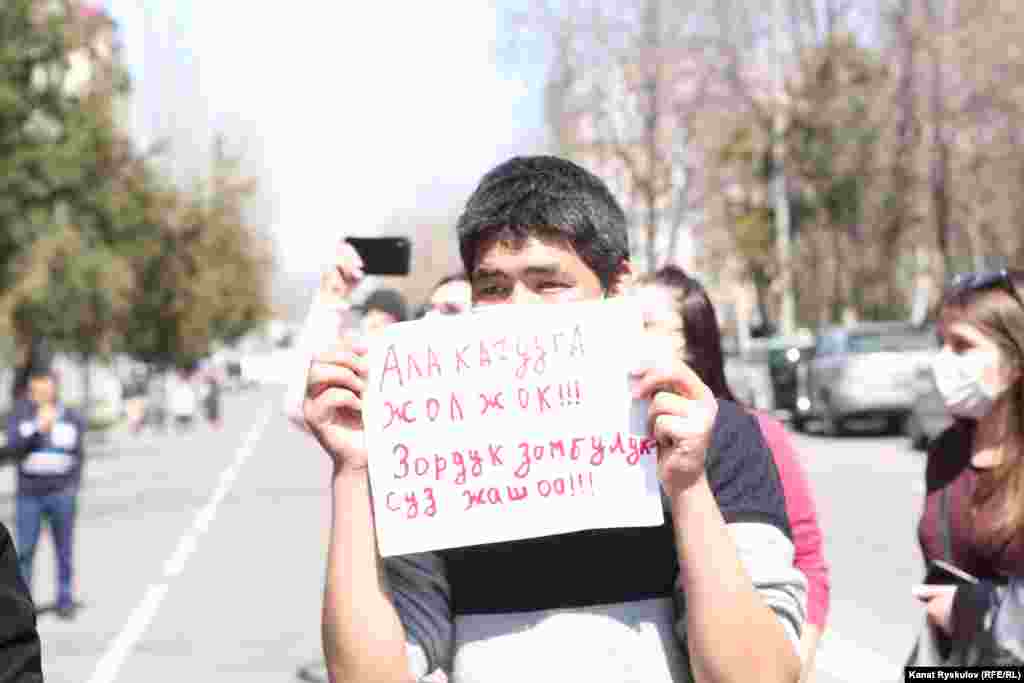 АЛА КАЧУУГА
ЖОЛ ЖОК!!!
Зордук зомбулук
суз жашоо!!!
Kanat Ryskulov (RFE/RL)